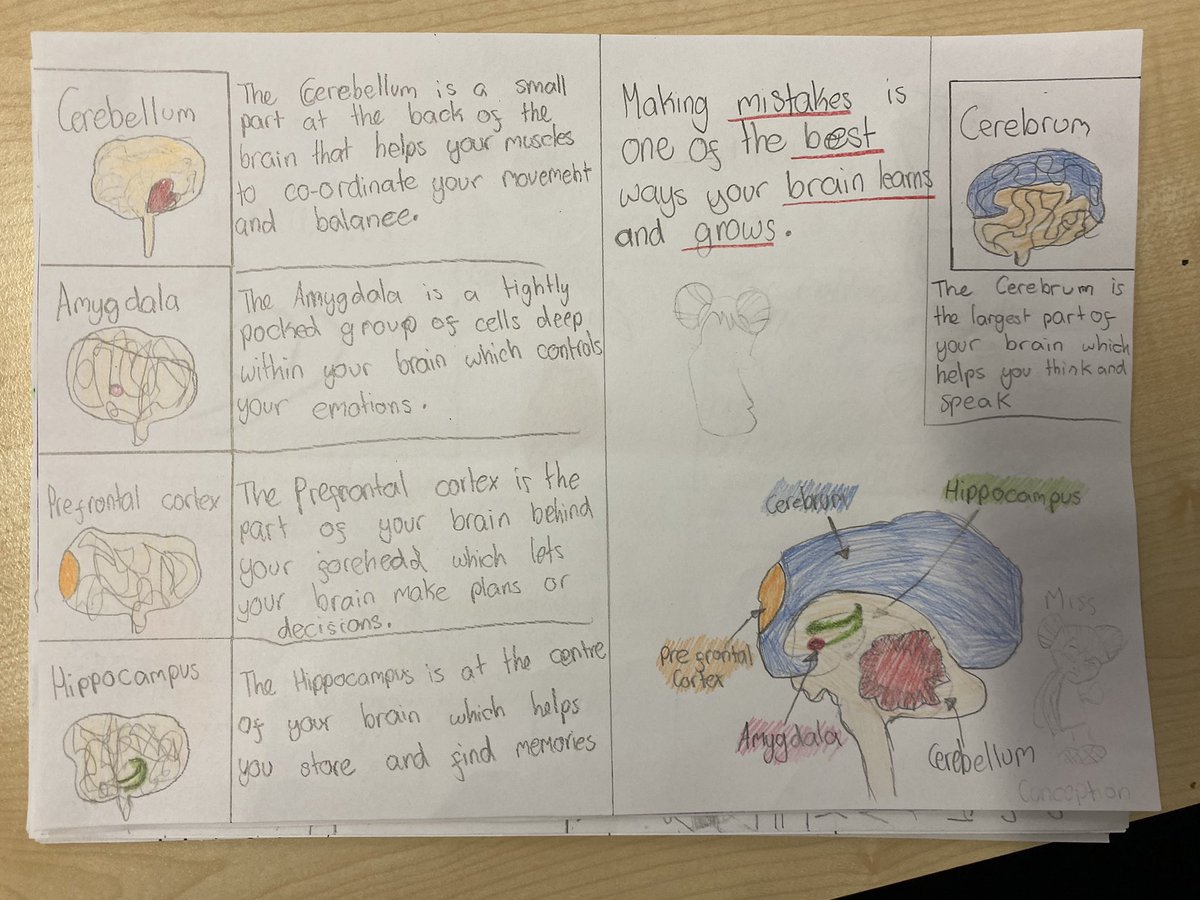 Cerebellum
The Cerebellum is a small
part at the back of the
brain that helps your muscles
to co-ordinate your movement
and balance.
Amygdala
The Amygdala is a tightly
packed group of cells deep
within your brain which controls
your emotions.
Prefrontal cortex
The Prefrontal cortex is the
part of your brain behind
your forehedd which lets
your brain make plans or
decisions.
Hippocampus
The Hippocampus is at the centre
of your brain which helps
you store and find memories
Making mistakes is
one of the best
ways your brain learns
and grows.
Cerebrum
The Cerebrum is
the largest part of
your brain which
helps you think and
speak
Cerebrum
Hippocampus
Pre frontal
Cortex
Amygdala
Cerebellum
Miss
Conception